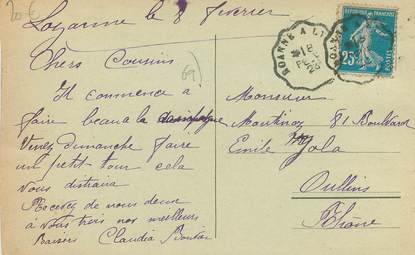 20€
Lozanne le 8 fevrier
Chers Cousins
69)
Il commence a
faire beau a la
Venez Dimanche faire
un petit tour cela
vous distraira
Recevez de nous deux
à vous trois nos meilleurs
Baisers Claudia
ROANNE A LY
FEVR
23
REPUBLIQUE FRANÇAISE
25c
POSTES
Monsieur
Martinez 81 Boulevard
Emile Zola
Oullins
Rhône